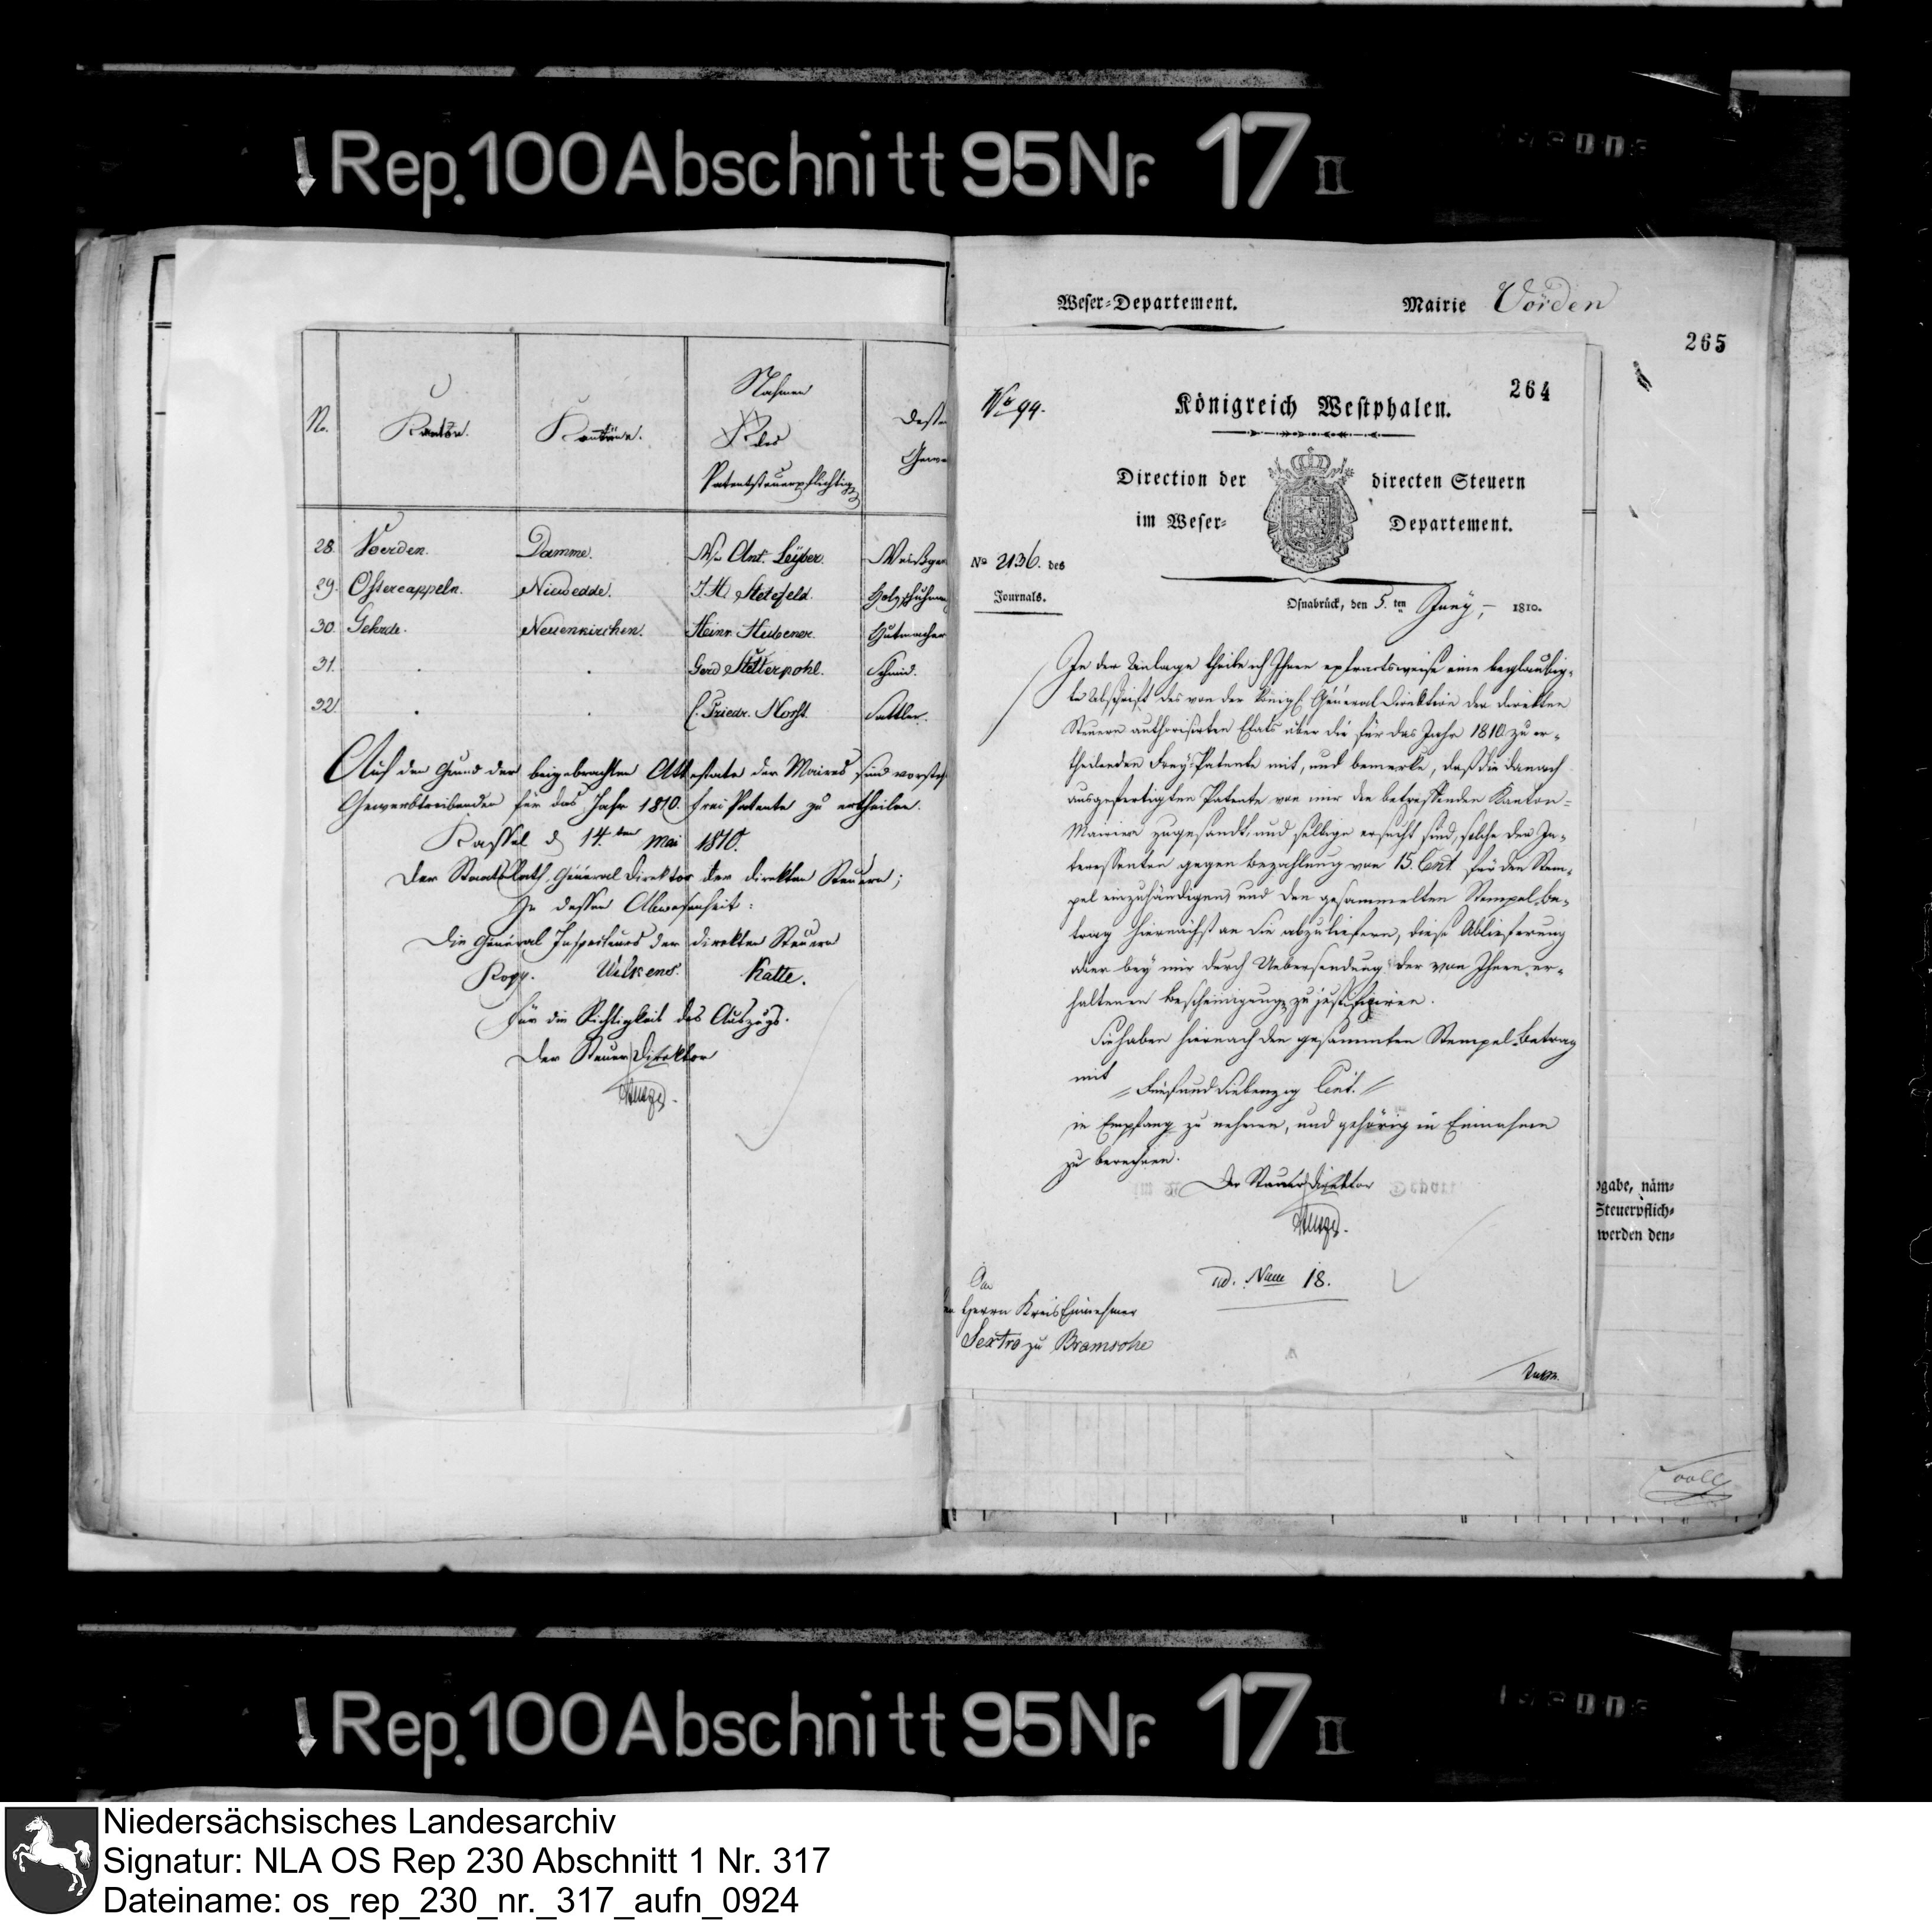 Rep. 100 Abschnitt 95 Nr. 17 II
N.
Kanton.
Nahmen
des
Patentsteuerpflichtig
28. Voerden. Damme. Ant. Leÿber.
29. Ostercappeln. Niewedde. J. H. Stetefeld. Holzschuhm
30. Gehrde. Neuenkirchen. Heinr. Huebener. Hutmacher
31. . . Gerd Stellerpohl. Schmid.
32. . . C. Friedr. Horst. Sattler.
Auf den Grund der beigebrachten Attestate der Maires sind vorsteh
Gewerbtreibenden für das Jahr 1810. frei Patente zu ertheilen.
Kassel d 14.ten Mai 1810.
Der StaatsRath, Général Direktor der direkten Steuern;
In dessen Abwesenheit:
Die Général Inspecteurs der direkten Steuern
Kopp. Wilkens. Katte.
Für die Richtigkeit des Auszugs.
Der Steuer Direktor
Weser-Departement. Mairie Vörden
265
264
No 94.
Königreich Westphalen.
Direction der directen Steuern
im Weser- Departement.
No 2136. des
Journals.
Osnabrück, den 5.ten Juny, 1810.
In der Anlage theile ich Ihnen extractsweise eine beglaubig-
te Abschrift des von der Königl. Général Direktion der direkten
Steuern authorisirten Etats über die für das Jahr 1810 zu er-
theilenden Frey Patente mit, und bemerke, daß die danach
ausgefertigten Patente von mir den betreffenden Kanton-
Mairien zugesandt, und selbige ersucht sind, solche den In-
teressenten gegen Bezahlung von 15. Cent. für den Stem-
pel einzuhändigen, und den gesammelten Stempel Be-
trag hiernächst an Sie abzuliefern, diese Ablieferung
aber bey mir durch Uebersendung der von Ihnen er-
haltenen Bescheinigung zu justifiziren.
Sie haben hiernach den gesammten Stempel Betrag
mit
Fünf und Siebenzig Cent.
in Empfang zu nehmen, und gehörig in Einnahme
zu berechnen.
Der Steuer Direktor
ad. Num 18.
An
Herrn Kreis Einnehmer
Sextro zu Bramsche
gabe, näm-
Steuerpflich-
werden den-
Rep. 100 Abschnitt 95 Nr. 17 II
Niedersächsisches Landesarchiv
Signatur: NLA OS Rep 230 Abschnitt 1 Nr. 317
Dateiname: os_rep_230_nr._317_aufn_0924